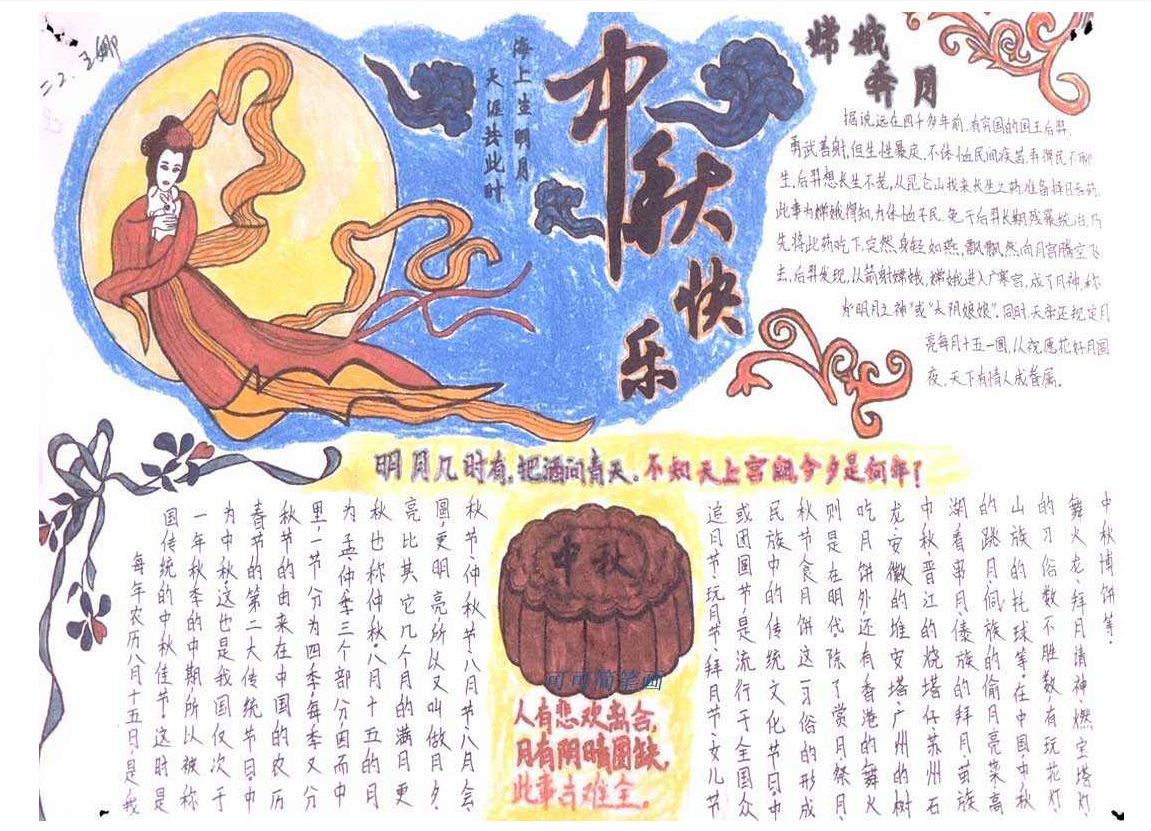 二2.王娜
海上生明月
天涯共此时
中秋
快
乐
嫦娥
奔月
据说远在四千多年前,有穷国的国王后羿,
勇武善射,但生性暴戾,不体恤民间疾苦,弄得民不聊
生。后羿想长生不老,从昆仑山找来长生之药,准备择日吞药,
此事为嫦娥得知,为体恤不民,免于后羿长期残暴统治,乃
先将此药吃下,突然,身轻如燕,飘飘然,向月宫腾空飞
去,后羿发现,从箭射嫦娥,嫦娥进入广寒宫,成了月神,称
为"明月之神"或"太阴娘娘".同时,天帝还规定月
亮每月十五一圆,以祝愿花好月圆
夜,天下有情人成眷属。
明月几时有,把酒问青天。不知天上宫阙,今夕是何年?
每年农历八月十五日,是我
国传统的中秋佳节。这时是
一年秋季的中期,所以被称
为中秋,这也是我国仅次于
春节的第二大传统节日。中
秋节的由来在中国的农历
里,一节分为四季,每季又分
为孟、仲、季三个部分,因而中
秋也称仲秋。八月十五的月
亮比其它几个月的满月更
圆,更明亮,所以又叫做月夕,
秋节、仲秋节、八月节、八月会、
中秋
可可简笔画
人有悲欢离合,
月有阴晴圆缺,
此事古难全。
追月节、玩月节、拜月节、女儿节
或团圆节,是流行于全国众
民族中的传统文化节日。中
秋节食月饼这一习俗的形成
则是在明代。除了赏月、祭月、
吃月饼外,还有香港的舞火
龙、安徽的堆宝塔、广州的树
中秋、晋江的烧塔仔、苏州石
湖看串月、傣族的拜月、苗族
的跳月、侗族的偷月亮菜、高
山族的托球等。在中国中秋
的习俗数不胜数,有玩花灯、
舞火龙、拜月请神、燃宝塔灯、
中秋博饼等。